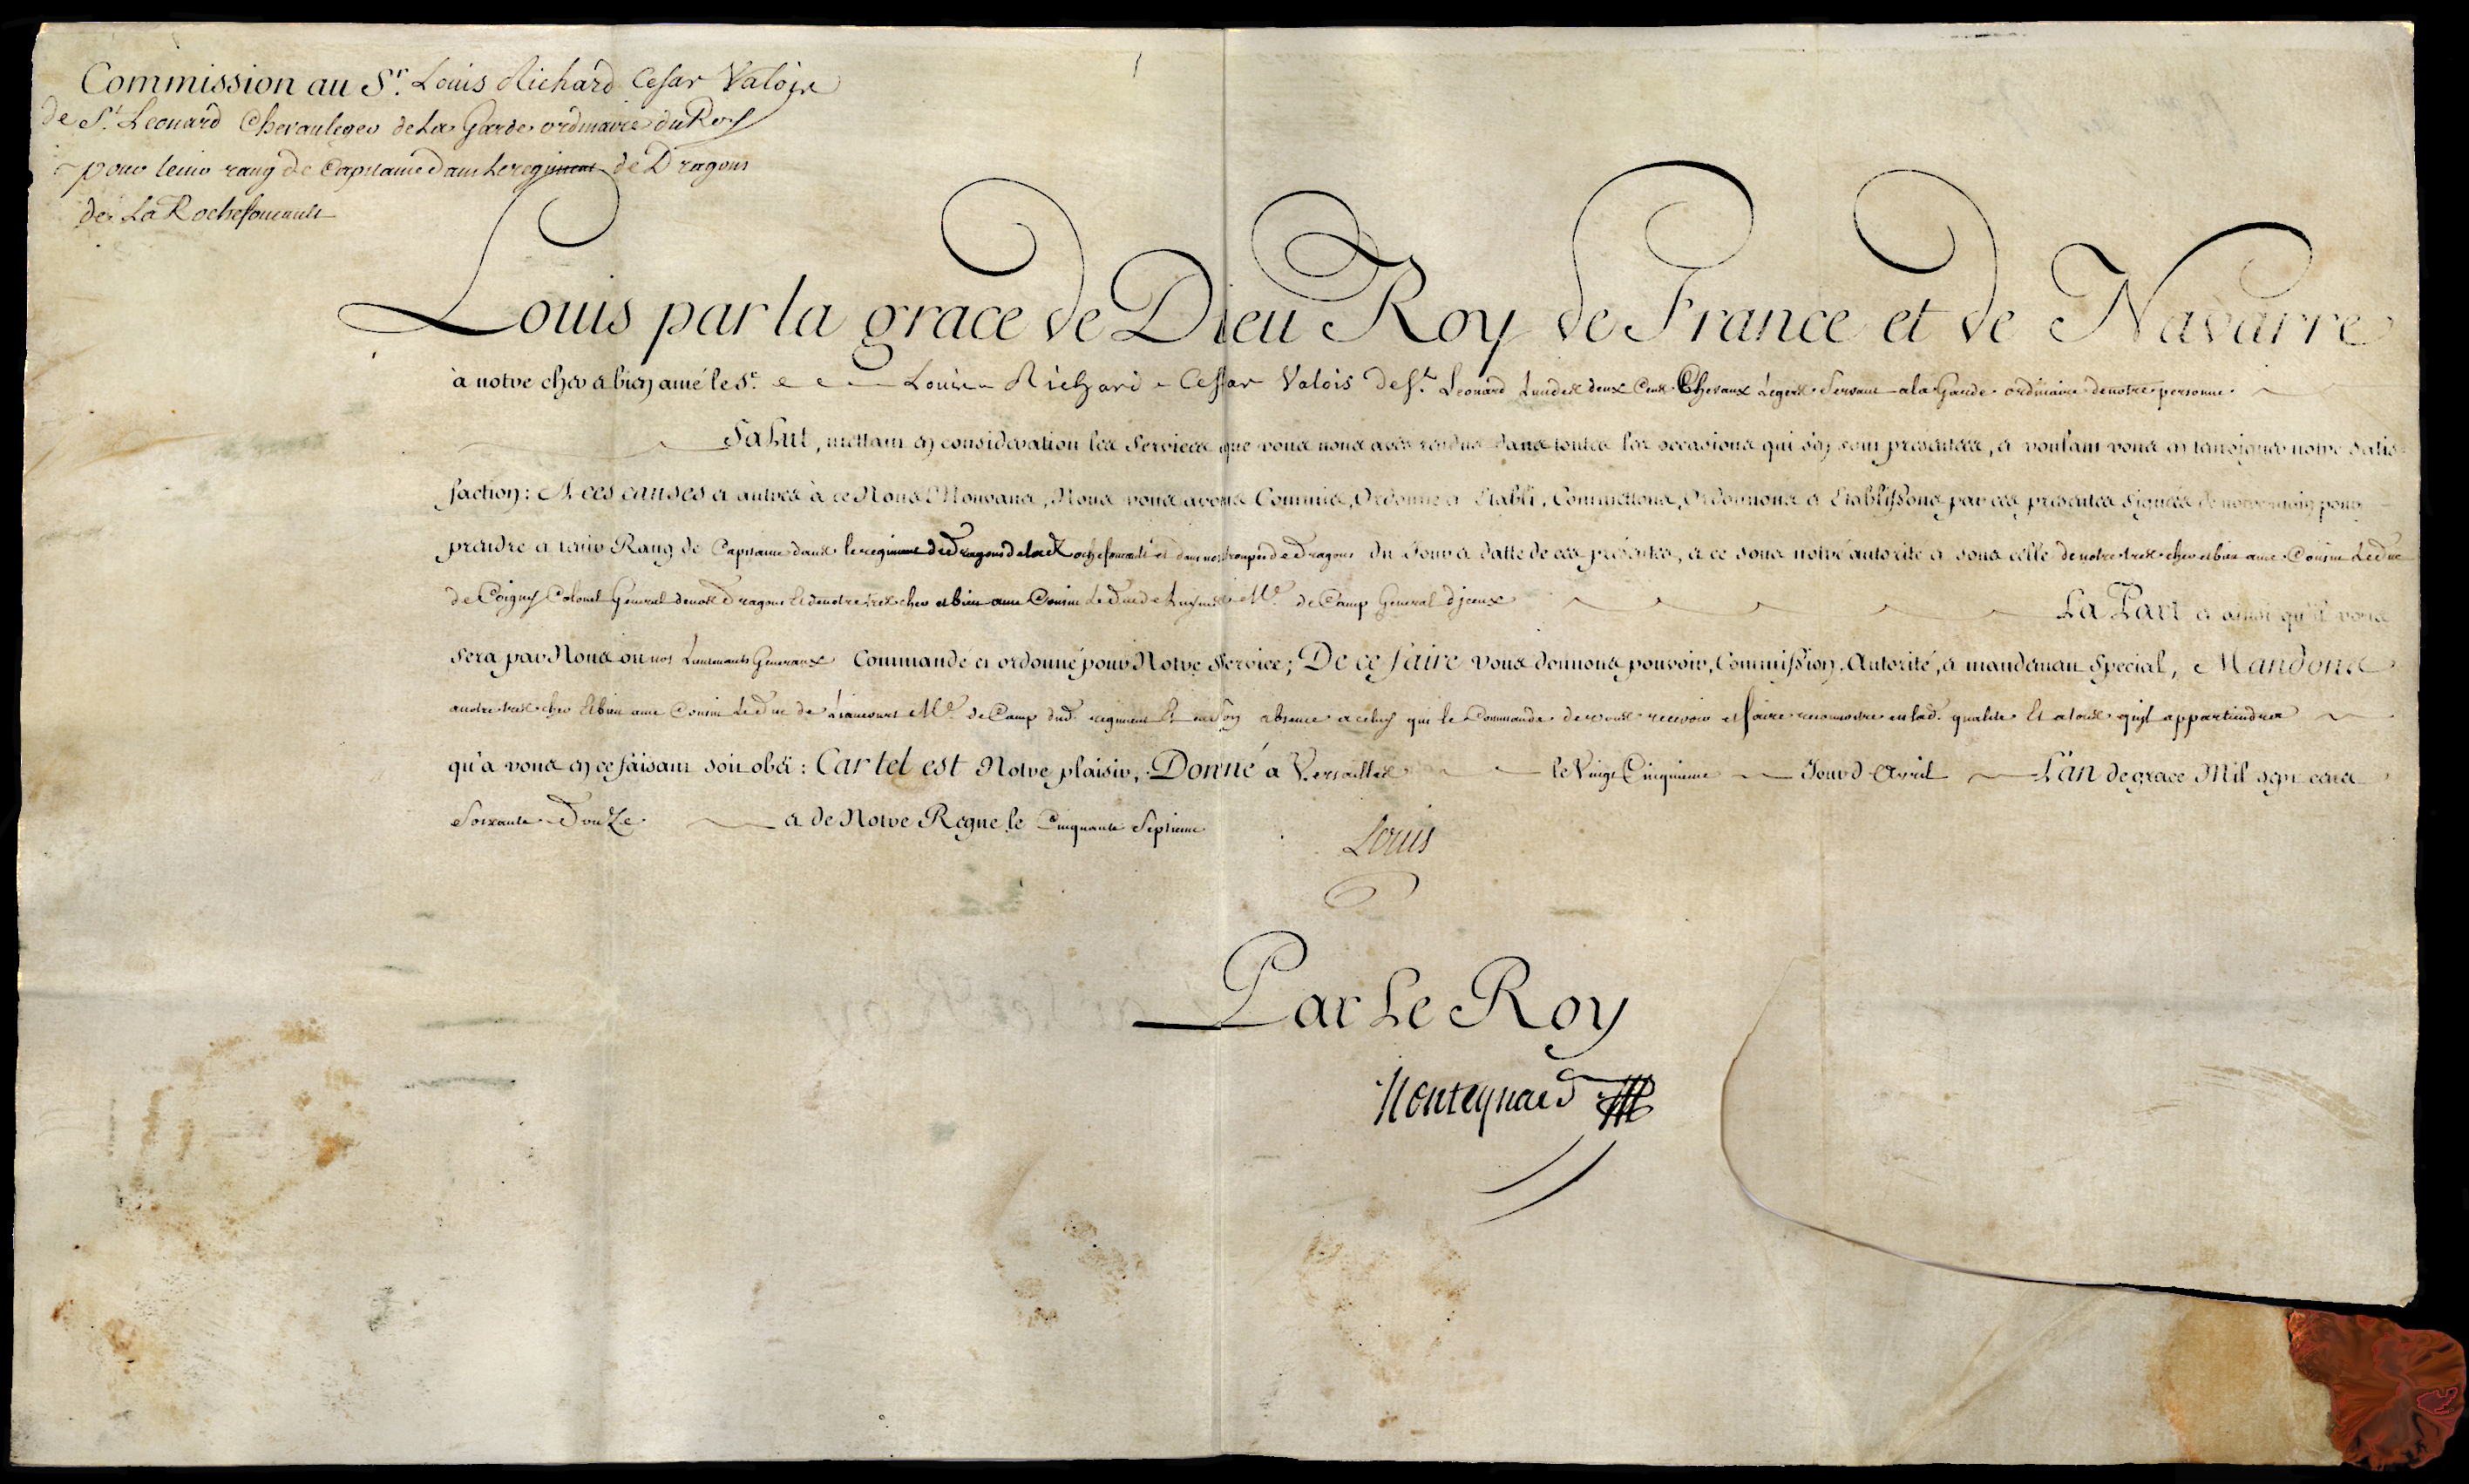 Commission au Sr. Louis Richard Cesar Valois
de St. Leonard Chevauleger de La Garde ordinaire du Roy
pour tenir rang de Capitaine dans Le regiment de Dragons
de La Rochefoucault
Louis par la grace de Dieu Roy de France et de Navarre
à notre cher et bien amé le Sr. Louis Richard Cessar Valois de St. Leonard L'un des deux Cens Chevaux Legers Servant a la Garde ordinaire de notre personne
Salut, mettant en considération les Services que vous nous avés rendus dans toutes les occasions qui s'en sont présentées, et voulant vous en temoigner notre satis-
faction: A ces causes et autres à ce Nous Mouvans, Nous vous avons Commis, Ordonné et Etabli, Commettons, Ordonnons et Etablissons par ces présentes signées de notre main pour
prendre et tenir Rang de Capitaine dans le regiment de Dragons de la Rochefoucault et dans nos troupes de Dragons du Jour et datte de ces présentes, et ce sous notre autorité et sous celle de notre tres cher et bien amé Cousin Le Duc
de Coigny Colonel General de nos Dragons Et de notre tres cher et bien amé Cousin Le Duc de Luynes Me. de Camp General d'iceux La Part et ainsi qu'il vous
sera par Nous ou nos Lieutenants Generaux Commandé et ordonné pour Notre Service; De ce faire vous donnons pouvoir, Commission, Autorité, et mandement Special, Mandons
a notre tres cher Et bien amé Cousin Le Duc de Liancourt Me. de Camp dud. regiment Et en son absence a celuy qui le Commande de vous recevoir et faire reconnoitre en lad. qualité Et a tous qu'il appartiendra
qu'à vous en ce faisant soit obéi: Car tel est Notre plaisir, Donné à Versailles le Vingt Cinquieme Jour d'Avril L'an de grace Mil sept cens
Soixante Douze et de Notre Regne le Cinquante Septieme
Louis
Par Le Roy
Monteynard